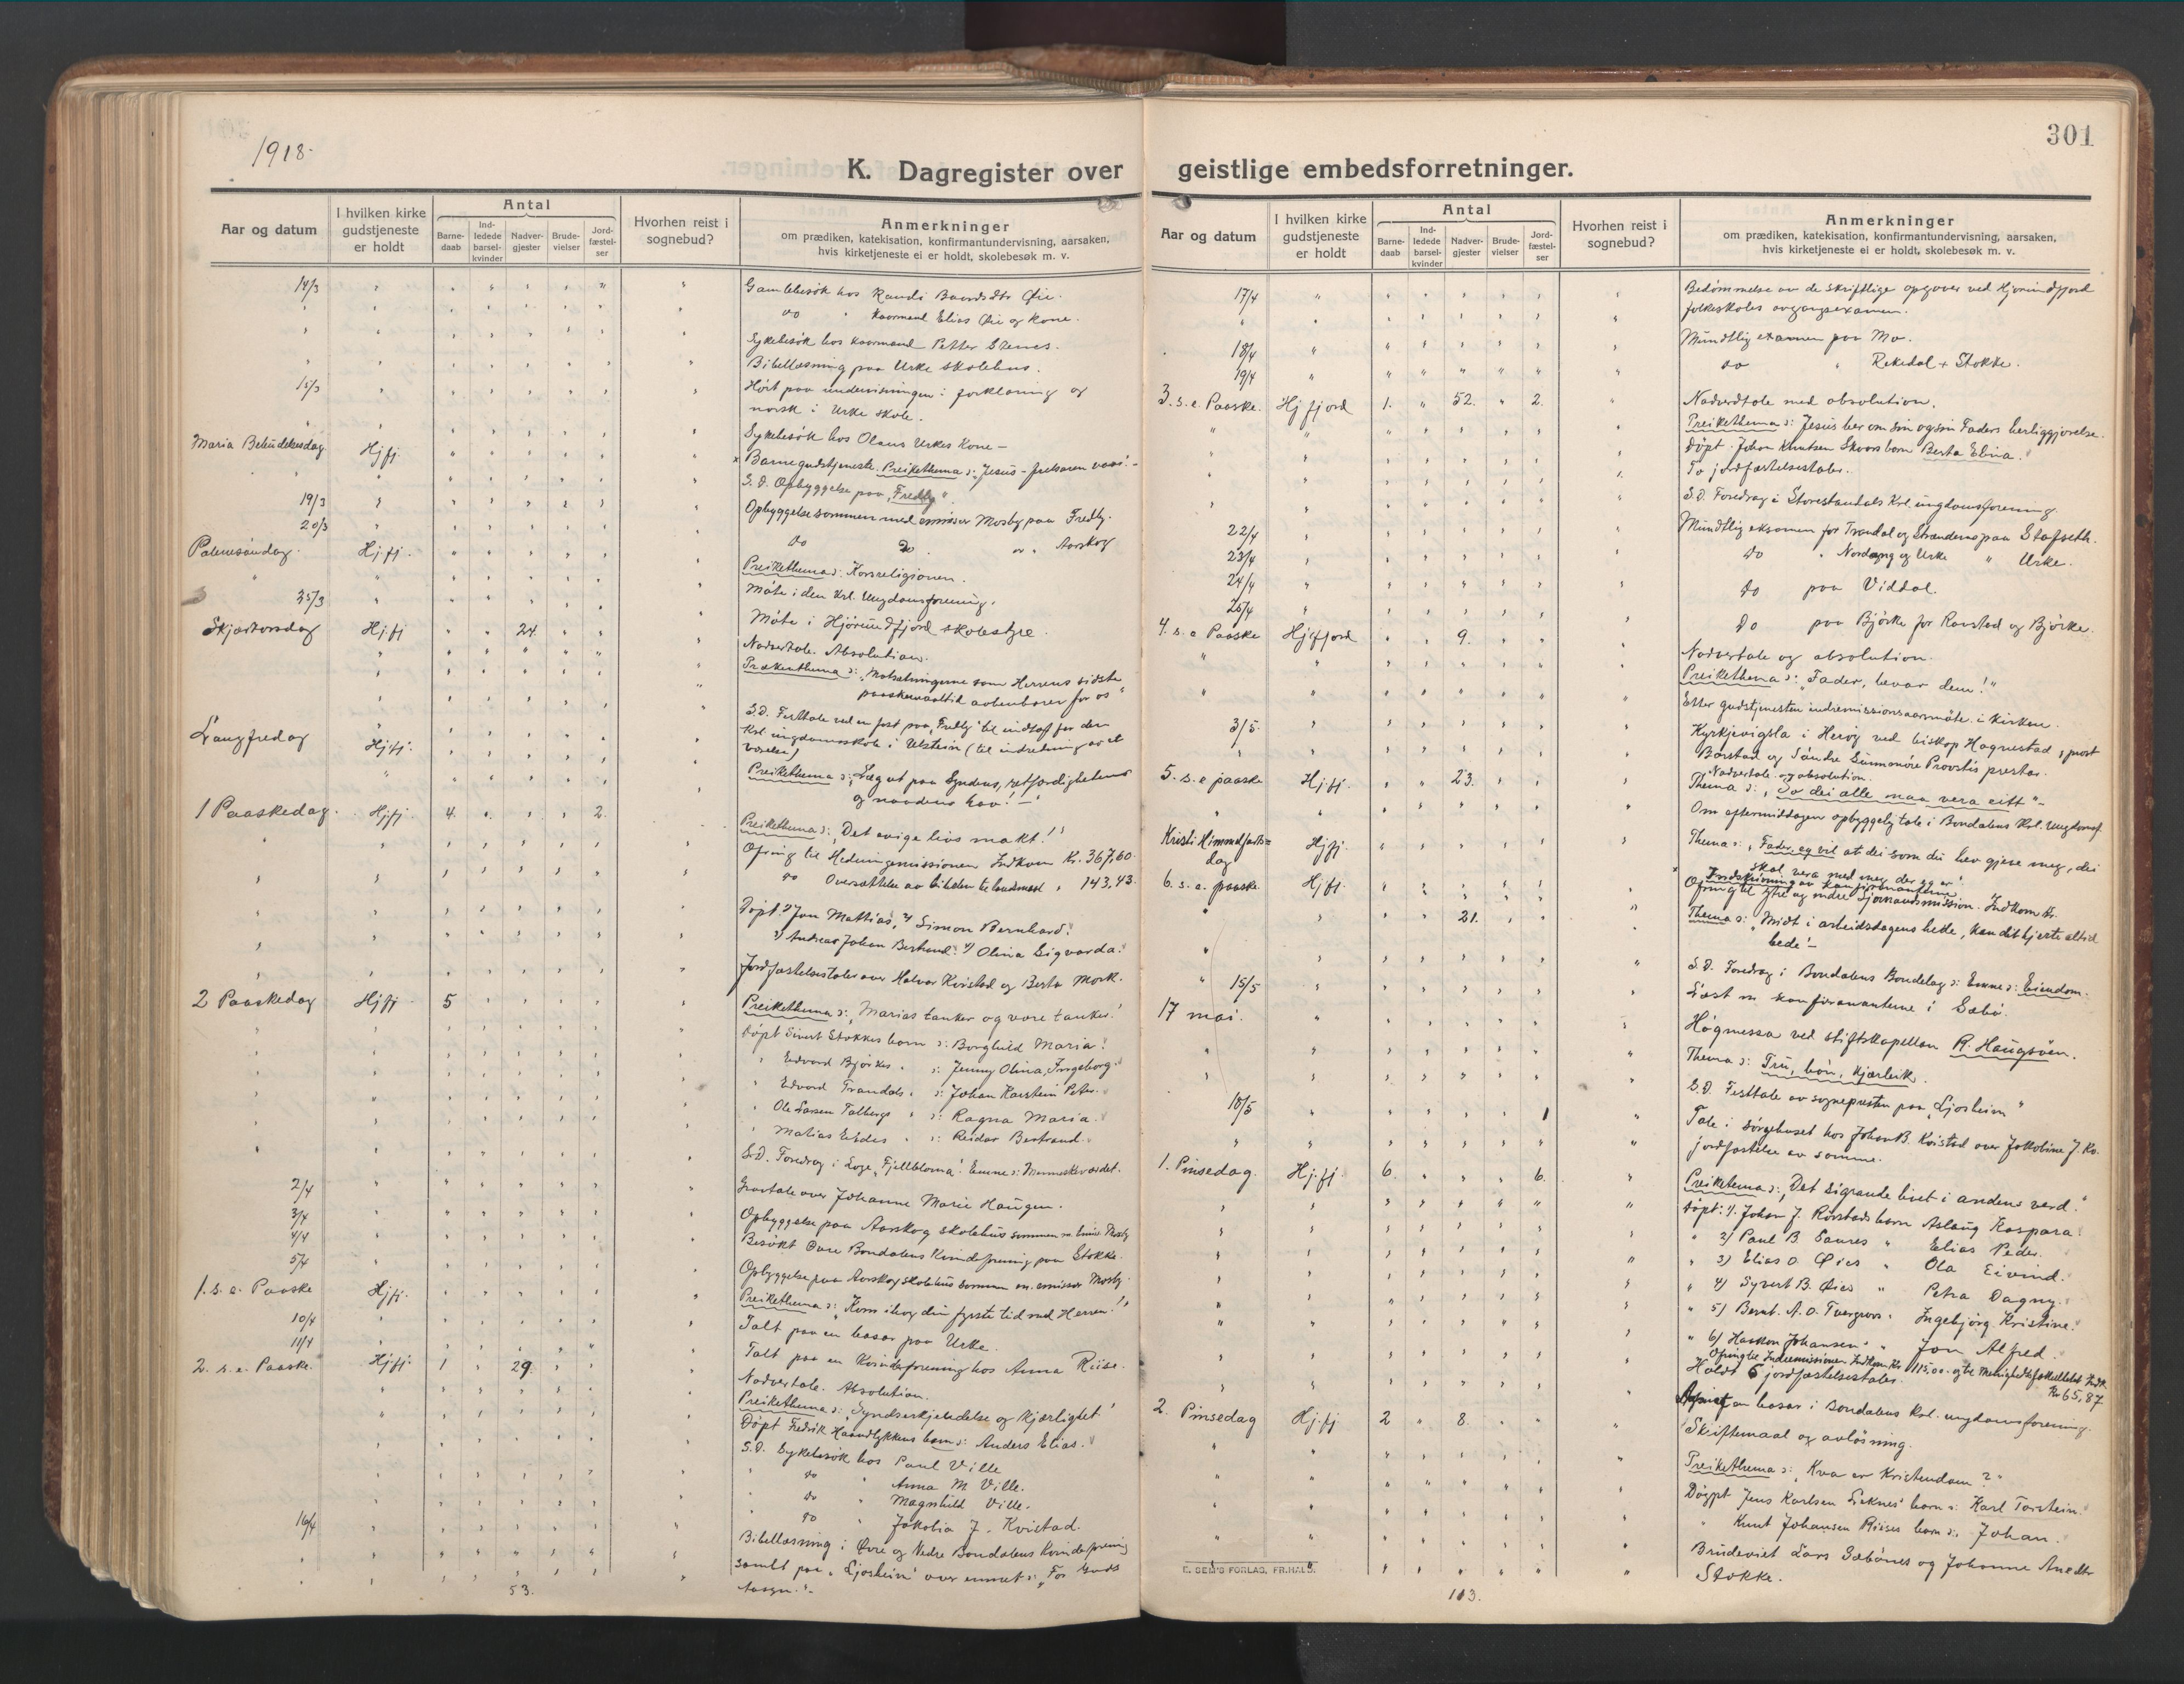 1918
301
K. Dagregister over geistlige embedsforretninger.
Aar og datum
I hvilken kirke gudstjeneste er holdt
Antal
Barne-daab
Ind-ledede barsel-kvinder
Nadver-gjester
Brude-vielser
Jord-fæstel-ser
Hvorhen reist i sognebud?
Anmerkninger
om prædiken, katekisation, konfirmantundervisning, aarsaken,
hvis kirketjeneste ei er holdt, skolebesøk m. v.
14/3 Gamlebesøk hos Randi Øie.
do " Kaarmand Elias Øie og kone.
Sykebesøk hos kaarmand Petter Stenes.
Bibellæsning paa Urke skolehus.
15/3 Hørt paa undervisningen i forklaring og
norsk i Urke skole.
Sykebesøk hos Olaus Urkes kone -
Maria Hj.fj. Barnegudstjeneste. Preikethema: "Jesus - frelsaren vaar." -
S. D. Opbyggelse paa "Fredly"
19/3 Opbyggelse sammen med emissær Mosby paa Fredly.
20/3 do do Aarskog
Palmesøndag. Hj.fj. Preikethema: Korsreligionen.
Møte i den krl. Ungdomsforening.
25/3 Møte i Hjørundfjord skolestyre.
Skjærtorsdag Hj.fj 24. Nadvertale. Absolution.
Prækenthema: som Herrens sidste
paaskemaaltid aabenbarer for os"
S.D. Festtale ved en fest paa "Fredly" til indtægt for den
krl. ungdomsskole i Ulstein (til indredning av et
værelse)
Langfredag Hj.fj. Preikethema: Læg ut paa Syndens, retfærdighetens
og naadens hav! -
1 Paaskedag. Hj.fj. 4. 2. Preikethema: "Det evige livs makt!"
Ofring til Hedningemissionen Indkom Kr. 367,60.
do Oversættelse av bibelen til landsmaal " 143,43.
Døpt: 1) Jon Mattias, 2) Simon Bernhard.
3) Andreas Johan Bertrand. 4) Olina Sigvarda.
Jordfæstelsestaler over Halvar Kvistad og Berta Mork.
2 Paaskedag Hj.fj. 5 Preikethema: "Marias tanker og vore tanker!
Døpt Sivert Stokkes barn : Borghild Maria.
" Edvard Bjørkes " : Jenny Olina Ingeborg.
" Edvard Trandals " : Johan Karstein Peter.
" Ole Larsen Talbergs " : Ragna Maria.
" Matias Eides " : Reidar Bertrand.
S.D. Foredrag i Loge "Fjellbloma". Emne: Menneskeværdet.
2/4 Gravtale over Johanne Marie Haugen.
3/4 Opbyggelse paa Aarskog skolehus sammen m. Mosby
4/4 Besøkt Øvre Bondalens Kvindeforening paa Stokke.
5/4 Opbyggelse paa Aarskog skolehus sammen m. emissær Mosby.
1. s. e. Paaske Hj.fj. Preikethema: "Kom ihog din fyrste tid med Herren!"
10/4 Talt paa en basar paa Urke.
11/4 Talt paa en Kvindeforening hos Anna Riise.
2. s. e. Paaske. Hj.fj. 1 29. Nadvertale. Absolution.
Preikethema: "Syndserkjendelse og Kjærlighet!
Døpt Fredrik barn: Anders Elias.
S.D. Sykebesøk hos Paul Ville
do " Anna M Ville.
do " Magnhild Ville.
do " Jakobia J. Kvistad.
16/4 Bibellæsning i Øvre og Nedre Bondalens Kvindeforening
samt paa "Ljosheim" over emnet: "For Guds
aasyn." -
53.
Aar og datum
I hvilken kirke gudstjeneste er holdt
Antal
Barne-daab
Ind-ledede barsel-kvinder
Nadver-gjester
Brude-vielser
Jord-fæstel-ser
Hvorhen reist i sognebud?
Anmerkninger
om prædiken, katekisation, konfirmantundervisning, aarsaken,
hvis kirketjeneste ei er holdt, skolebesøk m. v.
17/4 Bedømmelse av de skriftlige opgaver ved Hjørundfjord
folkeskoles avgangsexamen.
18/4 Mundtlig examen paa Mo.
19/4 do " Rekkedal + Stokke.
3. s. e. Paaske. Hj fjord 1. 52. 2. Nadverdtale med absolution.
Preikethema: Jesus ber om sin og sin Faders herliggjørelse.
Døpt: Johan Knutsen Skaars barn Berta Elina.
To jordfæstelsestaler.
S.D. Foredrag i Storestandals Krl. ungdomsforening.
22/4 Mundtlig eksamen for Trandal og Standal paa Stafseth.
23/4 do " Nordang og Urke " Urke.
24/4 do paa Viddal.
25/4 do paa Bjørke for Raustad og Bjørke.
4. s. e Paaske Hj.fjord 9. Nadvertale og absolution.
Preikethema: "Fader, bevar dem!"
Etter gudstjenesten indremissionsaarsmøte i kirken.
3/5. Kyrkjevigsla i Herøy ved biskop Hognestad, prost
Barstad og Søndre Sunnmøre Provstis prester.
5. s. e paaske Hj.fj. 23. Nadvertale og absolution.
Thema: "So dei alle maa vera eitt" -
Om eftermiddagen opbyggelig tale i Bondalens krl. Ungdomsf.
Kristi Himmelfarts=
dag Hj.fj. Thema: "Fader, eg vil at dei som du hev gjeve meg, dei
skal vera med meg der eg er"
6. s. e. paaske. Hj.fj. av konfirmanterne
Ofring til ytre og indre Sjømandsmission. Indkom Kr.
21. Thema: "Midt i arbeidsdagens hede, kan dit hjerte altid
bede! -
S.D. Foredrag i Bondalens Bondelag: Emne: Eiendom.
15/5 Læst m konfirmanterne i Sæbø.
17 mai. Høgmessa ved stiftskapellan R. Haugsøen.
Thema: Tru, bøn, kjærleik.
S.D. Festtale av sognepresten paa "Ljosheim"
18/5 1 Tale i sørgehuset hos Johan B. Kvistad over Jakobine J. Kv.
jordfæstelse av samme.
1. Pinsedag Hj.fj. 6. 6. Preiketema: "Det sigrande livet i andens verd."
Døpt: 1. Johan J. Rørstads barn Aslaug Kaspara.
" 2) Paul B Saures " Elias Peder.
" 3) Elias O. Øies " Ola Eivind.
" 4) Syvert B. Øies " Petra Dagny.
" 5) Bernt. A. O. Tvergrovs " Ingebjørg Kristine.
" 6) Haakon Johansens " Jon Alfred.
Ofring til Indremissionen Indkom Kr 115,00. og til Menighetsfakultetet Indk.
Kr 65,87
Holdt 6 jordfæstelsestaler.
en basar i Bondalens krl. ungdomsforening.
2. Pinsedag Hj.fj 2 8. Skriftemaal og avløsning.
Preikethema: "Kva er Kristendom?"
Døypt Jens Karlsen Leknes' barn: Karl Torstein.
" Knut Johansen Riises barn: Johan.
Brudeviet Lars Sæbønes og Johanne Anedtr
Stokke.
E. SEM'S FORLAG, FR.HALD.
113.